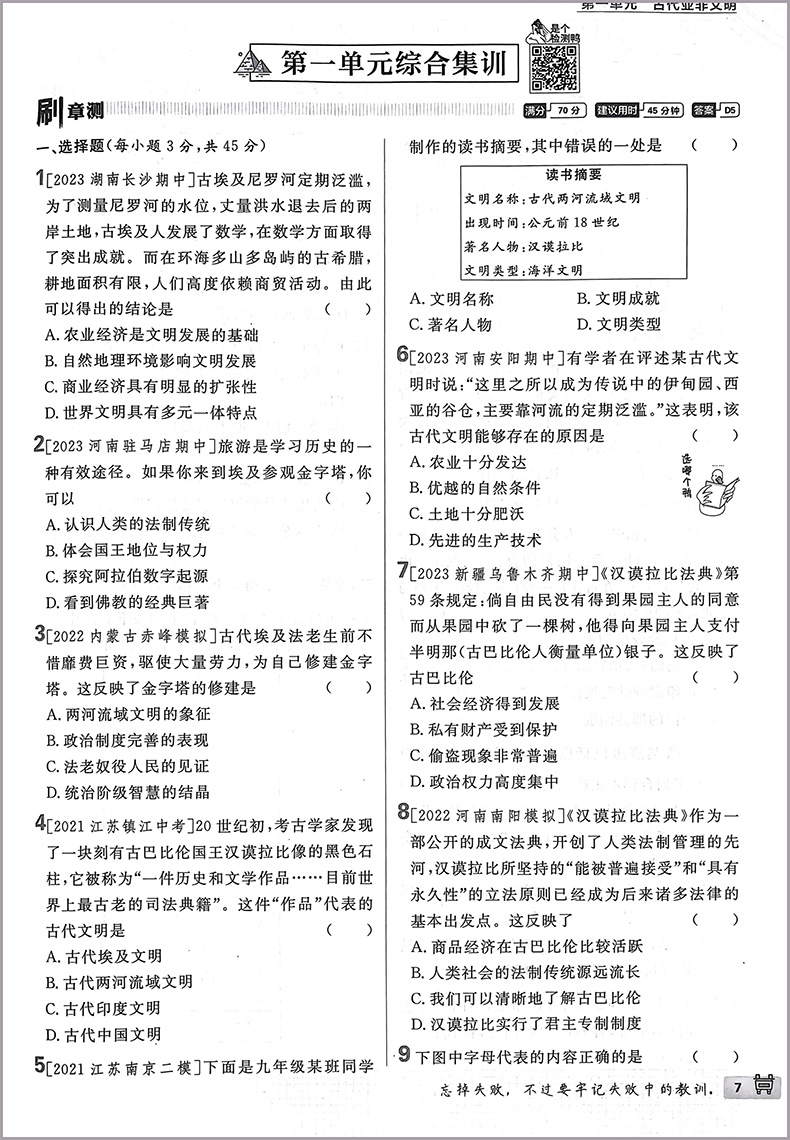 第一单元 古代亚非文明
是个
检测鸭
第一单元综合集训
刷章测
满分 70分 建议用时 45分钟 答案 D5
一、选择题(每小题3分,共45分)
1[2023湖南长沙期中]古埃及尼罗河定期泛滥,
为了测量尼罗河的水位,丈量洪水退去后的两
岸土地,古埃及人发展了数学,在数学方面取得
了突出成就。而在环海多山多岛屿的古希腊,
耕地面积有限,人们高度依赖商贸活动。由此
可以得出的结论是 ( )
A.农业经济是文明发展的基础
B.自然地理环境影响文明发展
C.商业经济具有明显的扩张性
D.世界文明具有多元一体特点
2[2023河南驻马店期中]旅游是学习历史的一
种有效途径。如果你来到埃及参观金字塔,你
可以 ( )
A.认识人类的法制传统
B.体会国王地位与权力
C.探究阿拉伯数字起源
D.看到佛教的经典巨著
3[2022内蒙古赤峰模拟]古代埃及法老生前不
惜靡费巨资,驱使大量劳力,为自己修建金字
塔。这反映了金字塔的修建是 ( )
A.两河流域文明的象征
B.政治制度完善的表现
C.法老奴役人民的见证
D.统治阶级智慧的结晶
4[2021江苏镇江中考]20世纪初,考古学家发现
了一块刻有古巴比伦国王汉谟拉比像的黑色石
柱,它被称为“一件历史和文学作品……目前世
界上最古老的司法典籍”。这件“作品”代表的
古代文明是 ( )
A.古代埃及文明
B.古代两河流域文明
C.古代印度文明
D.古代中国文明
5[2021江苏南京二模]下面是九年级某班同学
制作的读书摘要,其中错误的一处是 ( )
读书摘要
文明名称:古代两河流域文明
出现时间:公元前18世纪
著名人物:汉谟拉比
文明类型:海洋文明
A.文明名称 B.文明成就
C.著名人物 D.文明类型
6[2023河南安阳期中]有学者在评述某古代文
明时说:“这里之所以成为传说中的伊甸园、西
亚的谷仓,主要靠河流的定期泛滥。”这表明,该
古代文明能够存在的原因是 ( )
A.农业十分发达
B.优越的自然条件
C.土地十分肥沃
D.先进的生产技术
选哪个鸭
7[2023新疆乌鲁木齐期中]《汉谟拉比法典》第
59条规定:倘自由民没有得到果园主人的同意
而从果园中砍了一棵树,他得向果园主人支付
半明那(古巴比伦人衡量单位)银子。这反映了
古巴比伦 ( )
A.社会经济得到发展
B.私有财产受到保护
C.偷盗现象非常普遍
D.政治权力高度集中
8[2022河南南阳模拟]《汉谟拉比法典》作为一
部公开的成文法典,开创了人类法制管理的先
河,汉谟拉比所坚持的“能被普遍接受”和“具有
永久性”的立法原则已经成为后来诸多法律的
基本出发点。这反映了 ( )
A.商品经济在古巴比伦比较活跃
B.人类社会的法制传统源远流长
C.我们可以清晰地了解古巴比伦
D.汉谟拉比实行了君主专制制度
9下图中字母代表的内容正确的是 ( )
忘掉失败,不过要牢记失败中的教训。 7